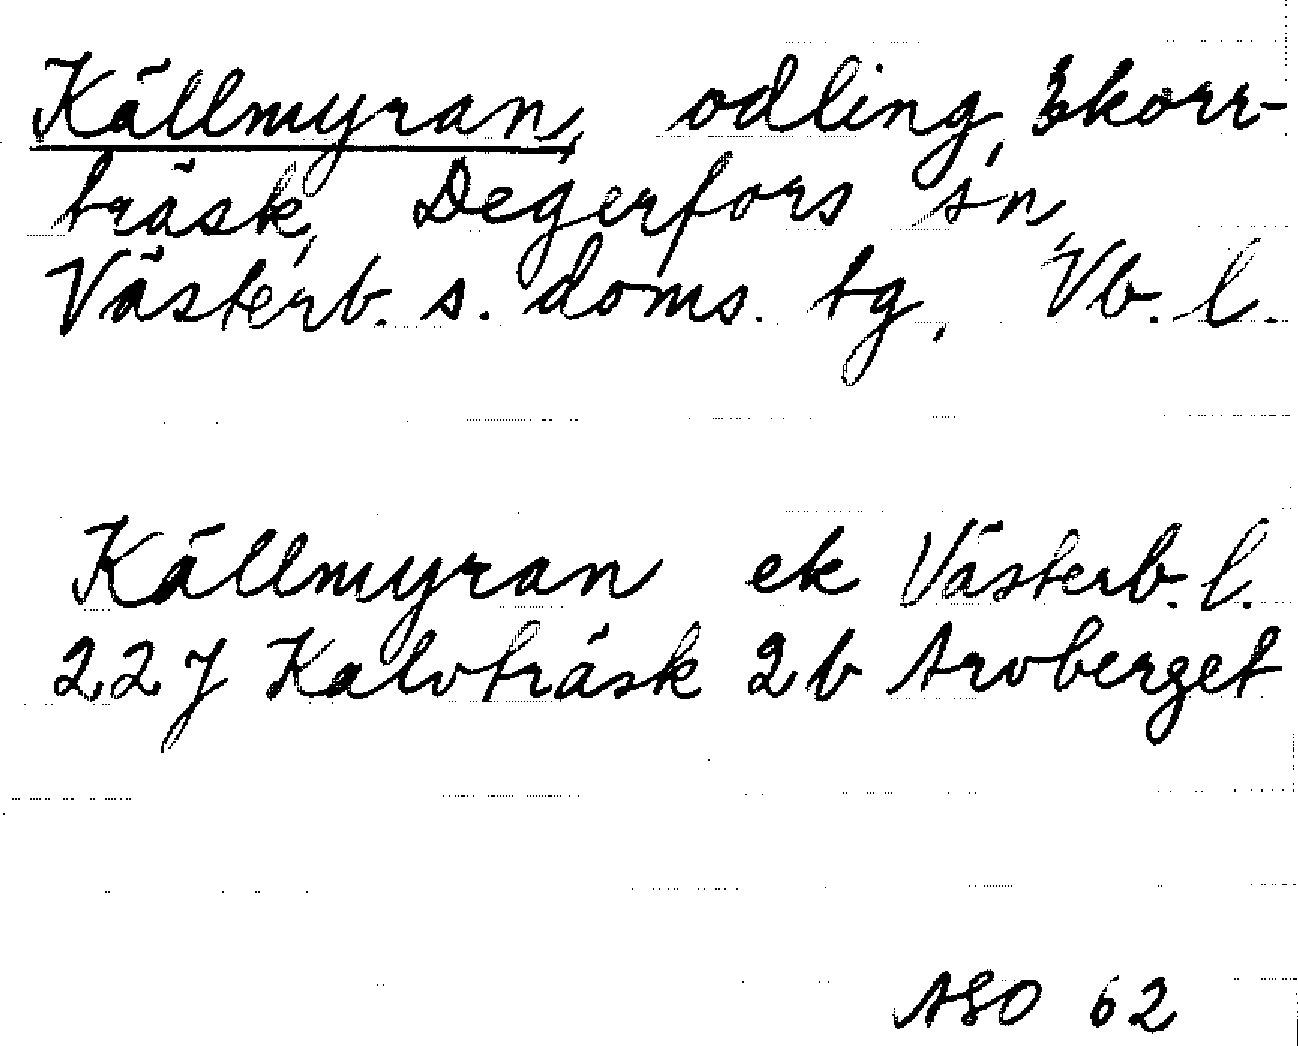 Källmyran, odling, Ekorr-
träsk, Degerfors sn,
Västerb. s. doms. tg, Vb. l.
Källmyran ek Västerb. l.
22J Kalvträsk 2b Arvberget
ASO 62